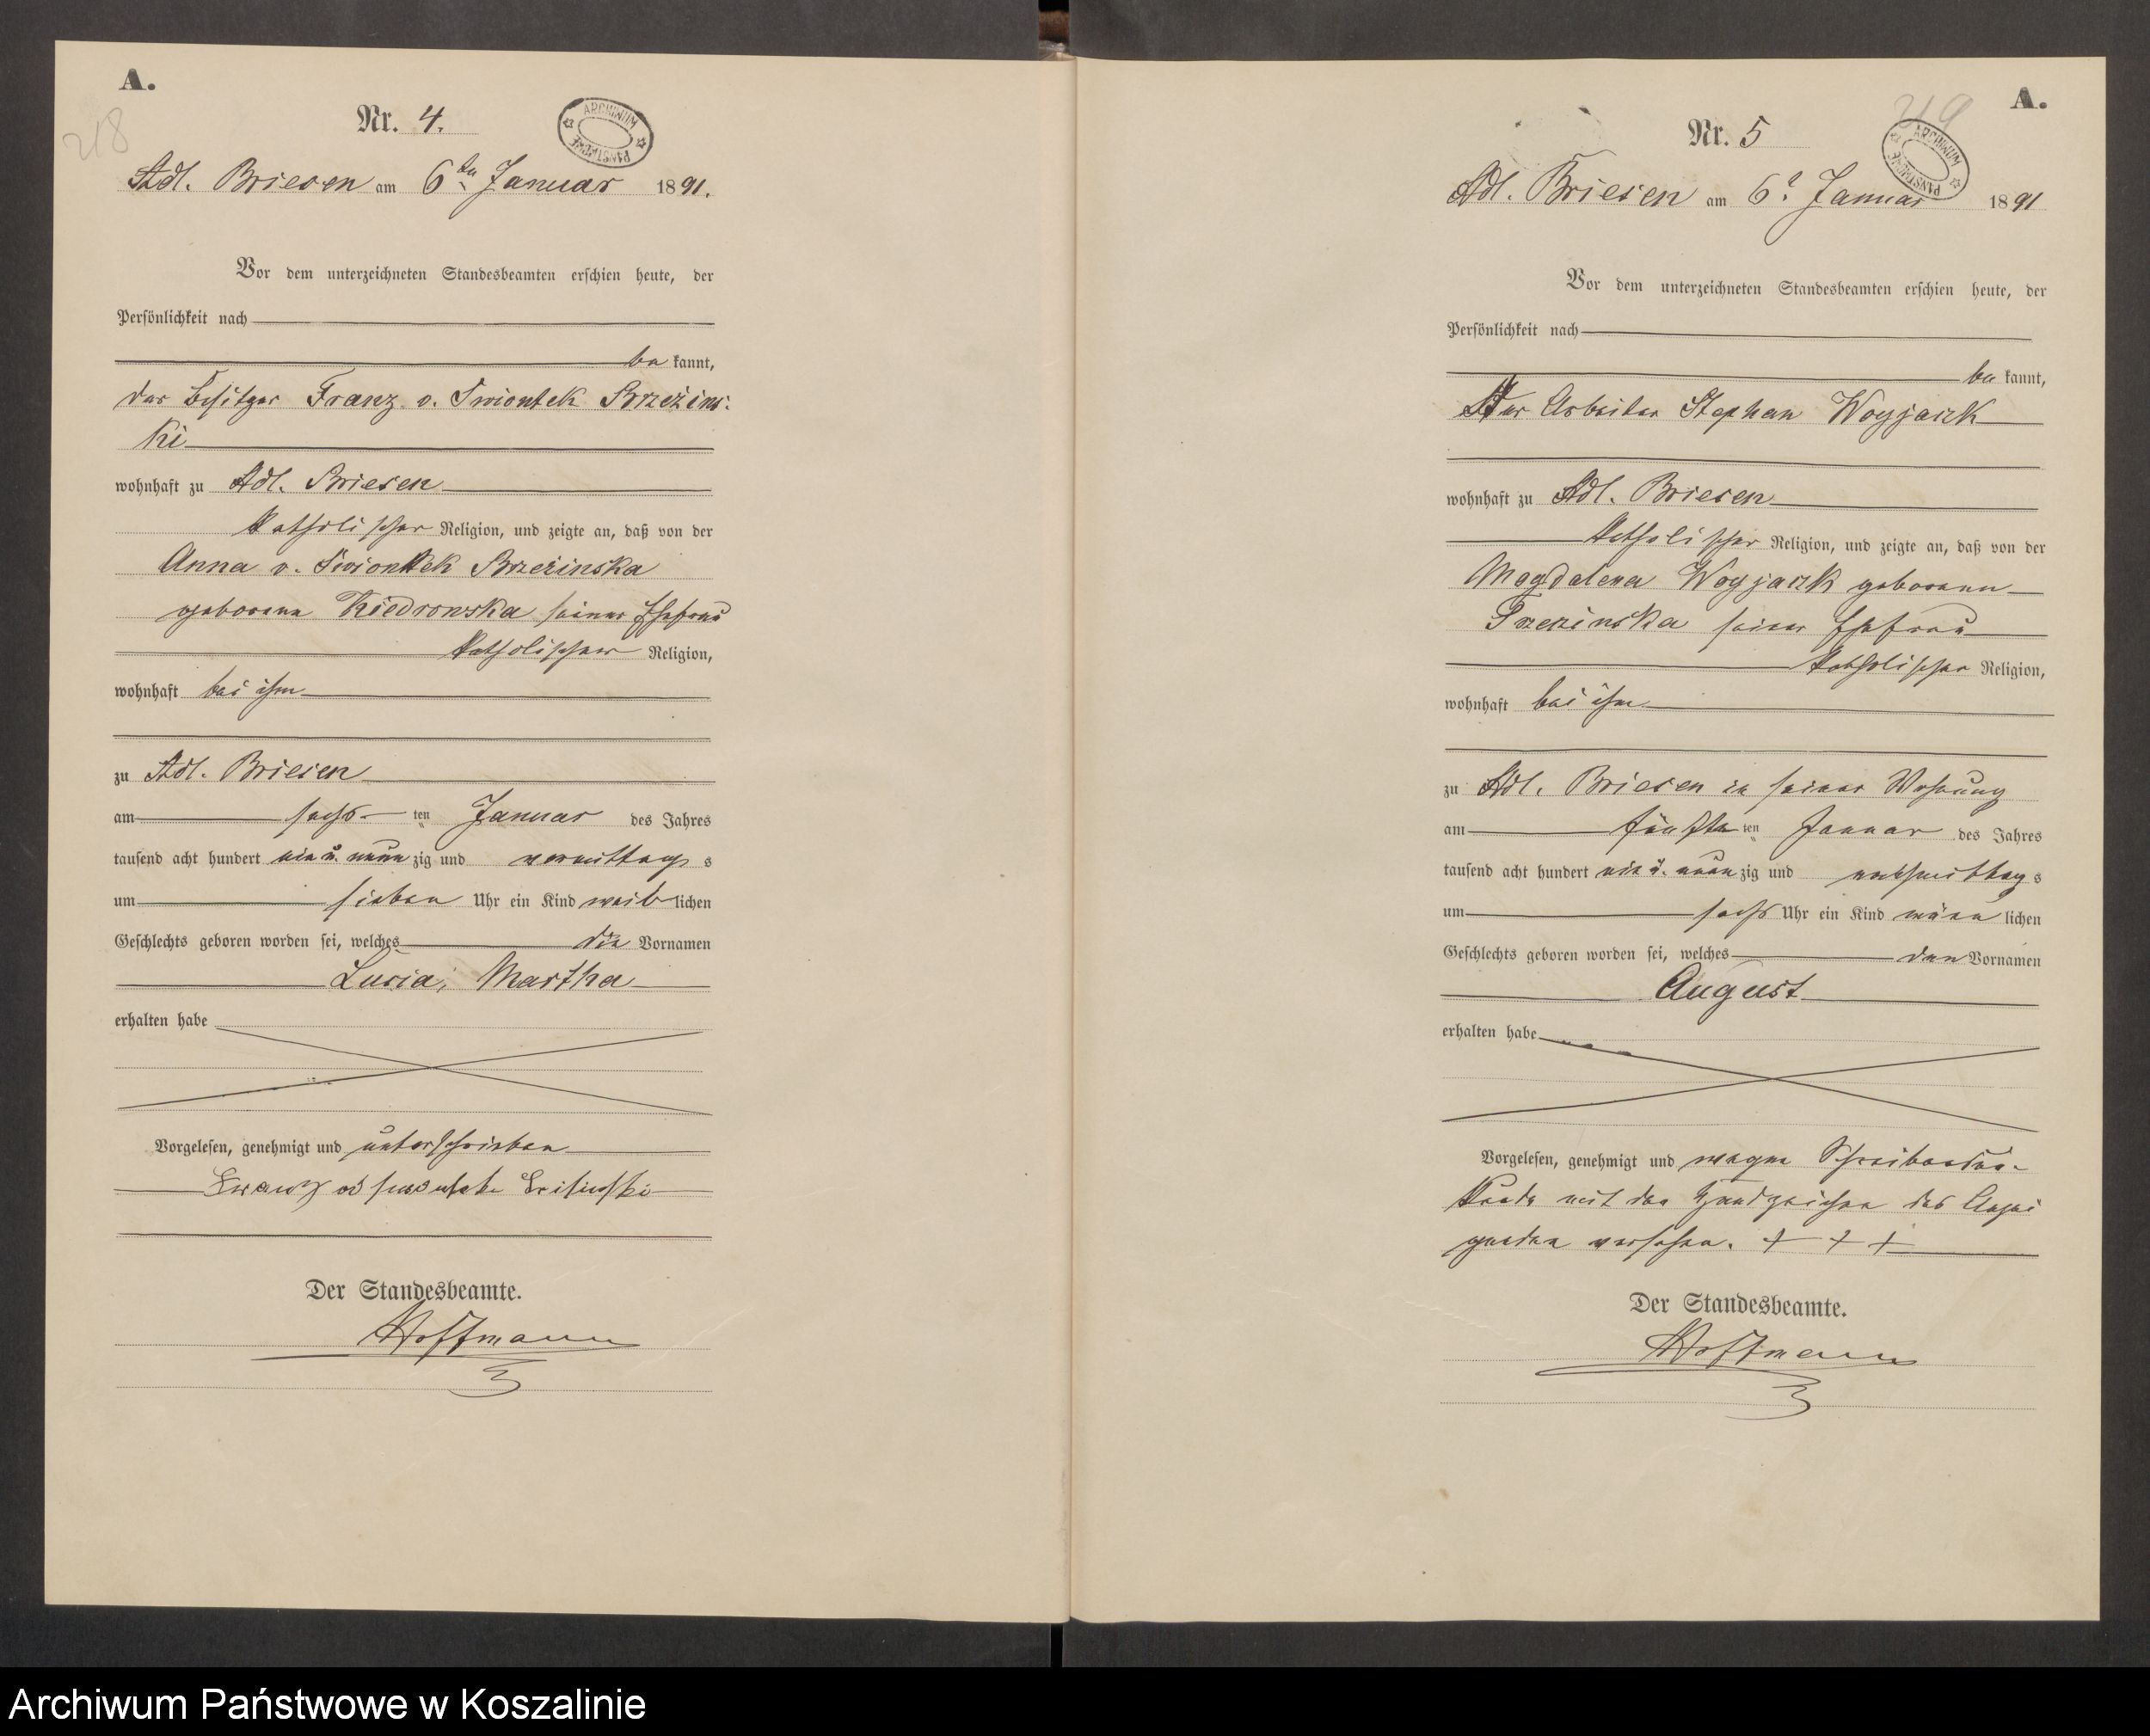 A.
218
Nr. 4.
ARCHIWUM PAŃSTWOWE
Adl. Briesen am 6ten Januar 1891.
Vor dem unterzeichneten Standesbeamten erschien heute, der
Persönlichkeit nach
be kannt,
der Besitzer Franz v. Swiontek Brzezins-
ki
wohnhaft zu Adl. Briesen
katholischer Religion, und zeigte an, daß von der
Anna v. Swiontek Brzezinska
geborene Kiedrowska seiner Ehefrau
katholischer Religion,
wohnhaft bei ihm
zu Adl. Briesen
am sechs ten Januar des Jahres
tausend acht hundert ein u. neun zig und vormittags
um sieben Uhr ein Kind weib lichen
Geschlechts geboren worden sei, welches die Vornamen
Lucia, Martha
erhalten habe
Vorgelesen, genehmigt und unterschrieben
Franz
Der Standesbeamte.
Hoffmann
A.
219
Nr. 5
ARCHIWUM PAŃSTWOWE
Adl. Briesen am 6t Januar 1891
Vor dem unterzeichneten Standesbeamten erschien heute, der
Persönlichkeit nach
be kannt,
Der Arbeiter Stephan Woyjack
wohnhaft zu Adl. Briesen
katholischer Religion, und zeigte an, daß von der
Magdalena Woyjack geborenen
seiner Ehefrau
katholischer Religion,
wohnhaft bei ihm
zu Adl. Briesen in seiner Wohnung
am fünften ten Januar des Jahres
tausend acht hundert ein u. neun zig und nachmittags
um sechs Uhr ein Kind männ lichen
Geschlechts geboren worden sei, welches den Vornamen
August
erhalten habe
Vorgelesen, genehmigt und wegen Schreibensun-
kunde mit den Handzeichen des Anzei
genden versehen. + + +
Der Standesbeamte.
Hoffmann
Archiwum Państwowe w Koszalinie